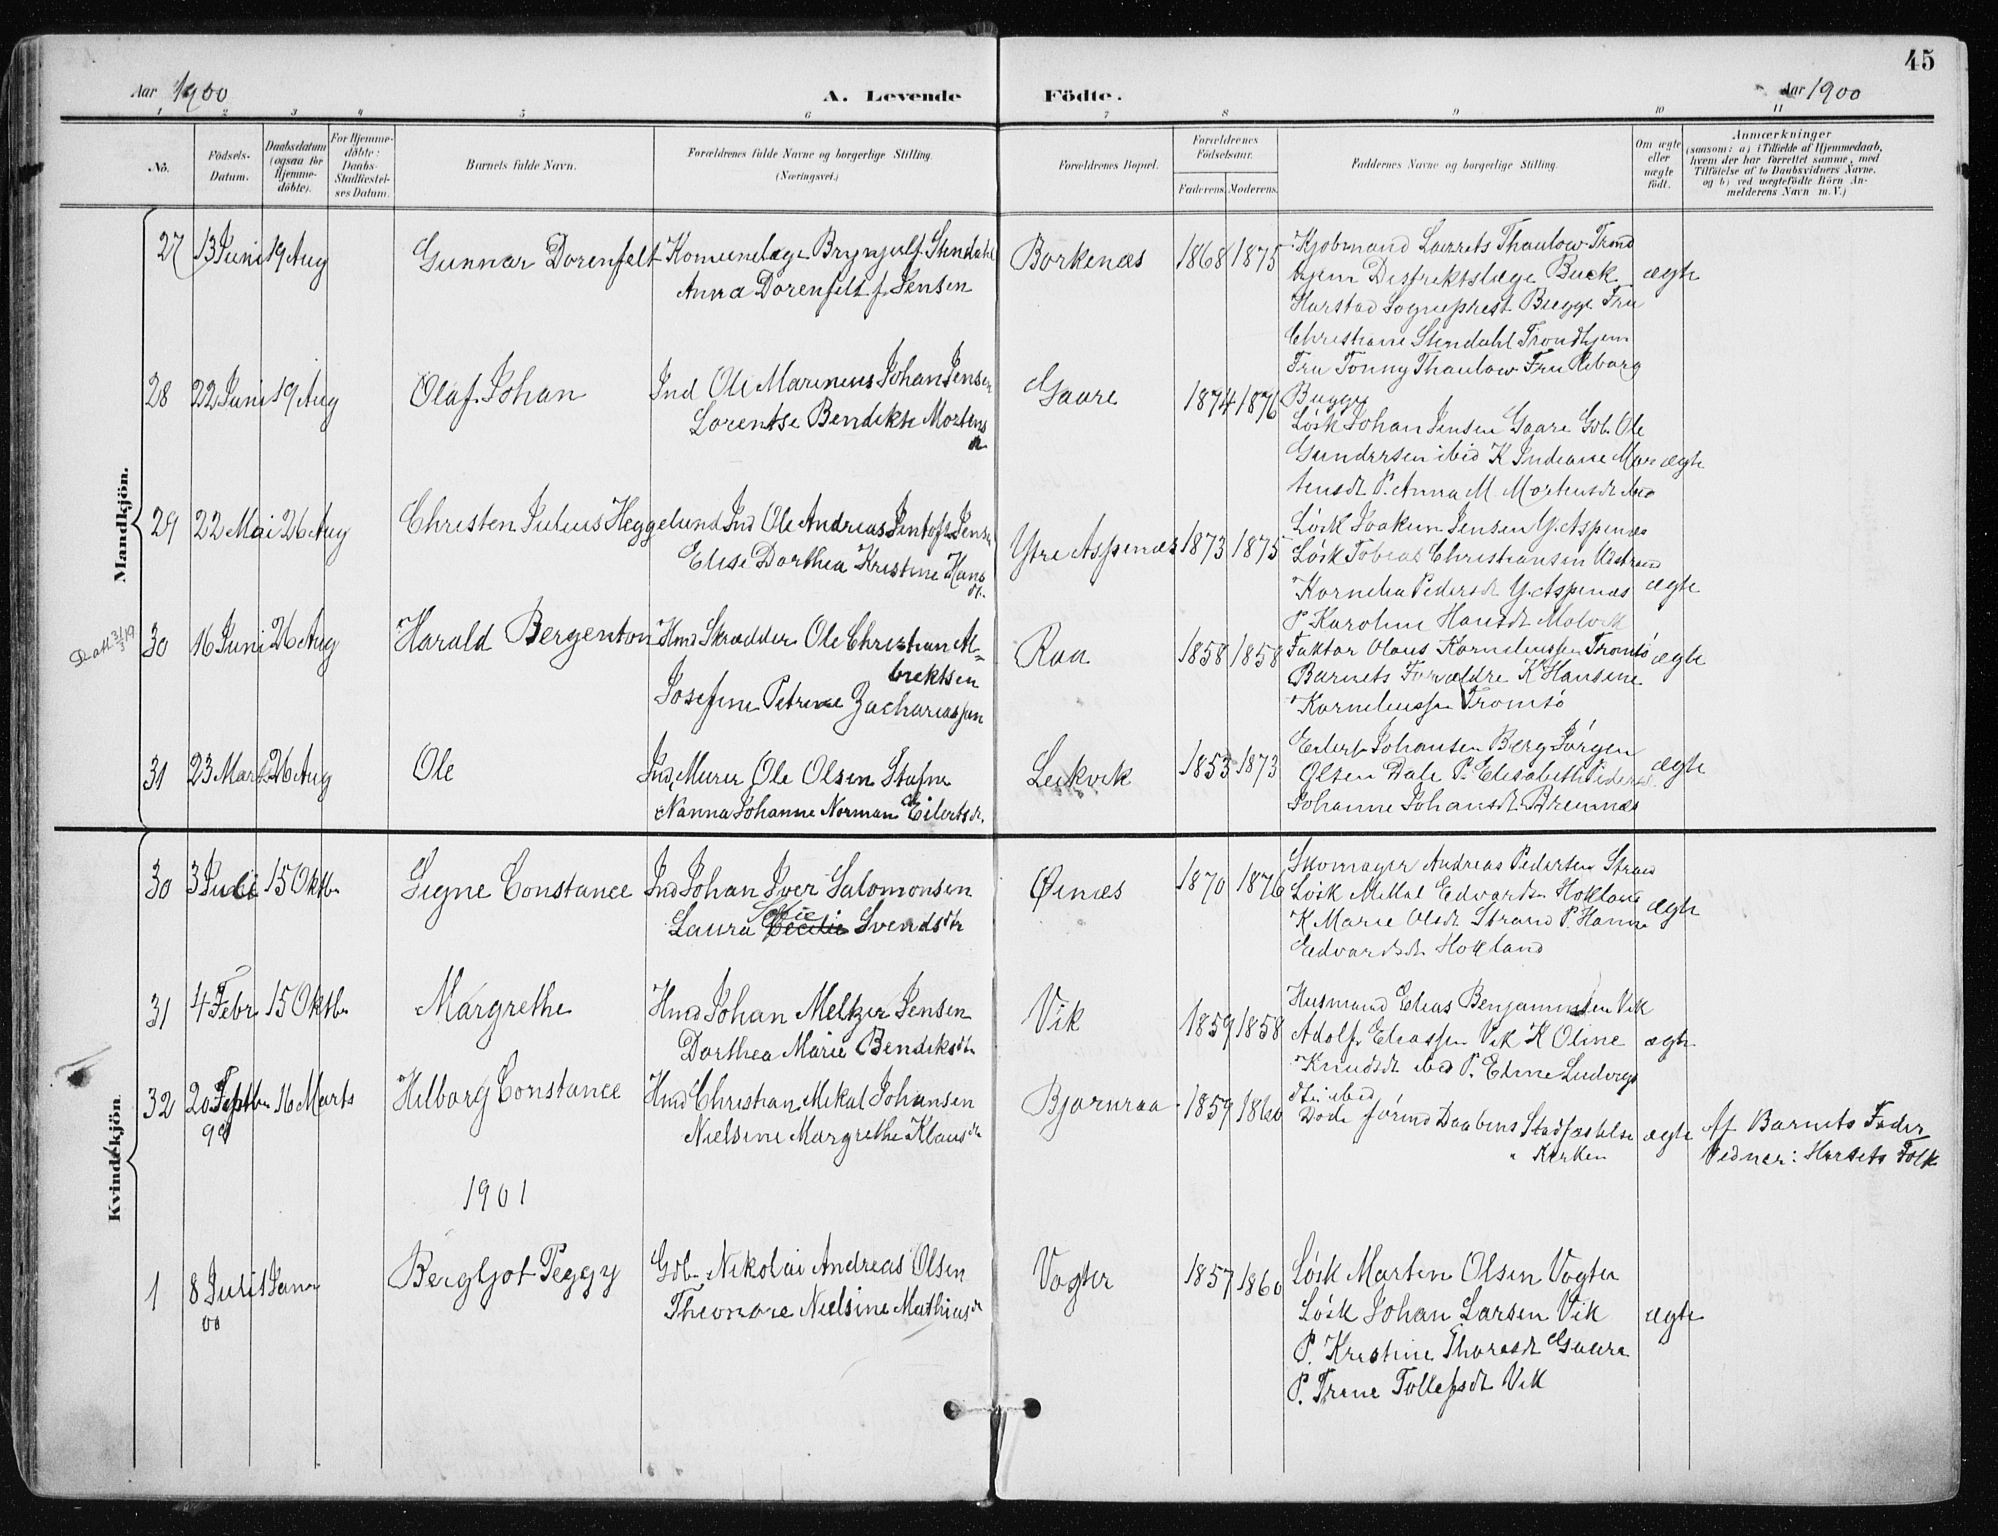 45
Aar 1900
A. Levende Födte.
Aar 1900
1 2 3 4 5 6 7 8 9 10 11
No.
Födsels-Datum.
Daabsdatum (ogsaa for Hjemme-döbte).
For Hjemme-döbte: Daabs-Stadfæstel-ses Datum.
Barnets fulde Navn.
Forældrenes fulde Navne og borgerlige Stilling. (Næringsvei.)
Forældrenes Bopæl.
Forældrenes Födselsaar.
Faderens. Moderens.
Faddernes Navne og borgerlige Stilling.
Om ægte eller uægte födt.
Anmærkninger (saasom: a) i Tilfælde af Hjemmedaab, hvem der har forrettet samme, med Tilföielse af to Daabsvidners Navne, og b) ved uægtefödte Börn An-melderens Navn m. V.)
Mandkjön.
27 13 Juni 19 Aug Gunnar Dorenfelt Komunelæge Brynjulf Stendahl Borkenæs 1868 1875 Kjøbmand Laurets Thaulow Trond
Anna Dorenfelt f. Jensen
hjem Distriktslæge Buck ægte
Harstad Sogneprest Bugge Fru
Christiane Stendahl Trondhjem
Fru Tonny Thaulow Fru Viborg
Bugge
28 22 Juni 19 Aug Olaf Johan Ind Ole Marinius Johan Jensen Gaare 1874 1876
Lorentse Bendikte Mortens
dt
Løsk Johan Jensen Gaare Gob. Ole
Gundersen ibid K Indiane Mor ægte
tensdt P. Anna M Mortensdt ibid
29 22 Mai 26 Aug Christen Julius Heggelund Ind Ole Andreas Jentoft Jensen Ytre Aspenæs 1873 1875
Elise Dorthea Kristine Hans
dt.
Løsk Joakim Jensen Y. Aspenæs
Løsk Tobias Christiansen
Kornelia Pedersdt Y. Aspenæs ægte
P. Karoline Hansdt
30 16 Juni 26 Aug Harald Bergenton Hmd Skrædder Ole Christian Al=
brektsen
Josefine Petrine Zachariassen
Raa 1858 1858 Faktor Olaus Korneliussen Tromsø ægte
Barnets Forældre K Hansine
Korneliussen Tromsø
31 23 Marts 26 Aug Ole Ind, Murer Ole Olsen Stafne Leikvik 1853 1873
Nanna Johanne Norman Eilertsdt.
Eilert Johansen Berg Jørgen
Olsen Dale P. Elisabeth Peders ægte
Johanne Johansdt Brennæs
Kvindekjön.
30 3 Juli 15 Oktbr Signe Constance Ind Johan Iver Salomonsen Øinæs 1870 1876
Sofie
Laura Cecilie Svendsdtr
Skomager Andreas Pedersen Strand
Løsk Mikal Edvardsn Hokland ægte
K Marie Olsdt Strand P. Hanna
Edvardsdt Hokland
31 4 Febr 15 Oktbr Margrethe Hmd Johan Meltzer Jensen Vik 1859 1858
Dorthea Marie Bendiksdtr
Husmand Elias Benjaminsen Vik
Adolf Eliassen Vik K Oline ægte
Knudsdt ibid P. Edine Ludvigs
dtr ibid
32 20 Septbr 99 16 Marts Hilborg Constance Hmd Christian Mikal Johansen Bjørnraa 1859 1860
Nielsine Margrethe Klausdtr
Døde førind Daabens Stadfæstelse
i Kirken
ægte Af Barnets Fader
Vidner: Husets Folk
1901
1 8 Juli 00 1 Jan Bergljot Peggy Gdb. Nikolai Andreas Olsen Vogter 1857 1860
Theonore Nielsine Mathiasdt
Løsk Martin Olsen Vogter
Løsk Johan Larsen Vik ægte
P. Kristine Thoresdt Gaara
P. Trine Tollefsdt Vik